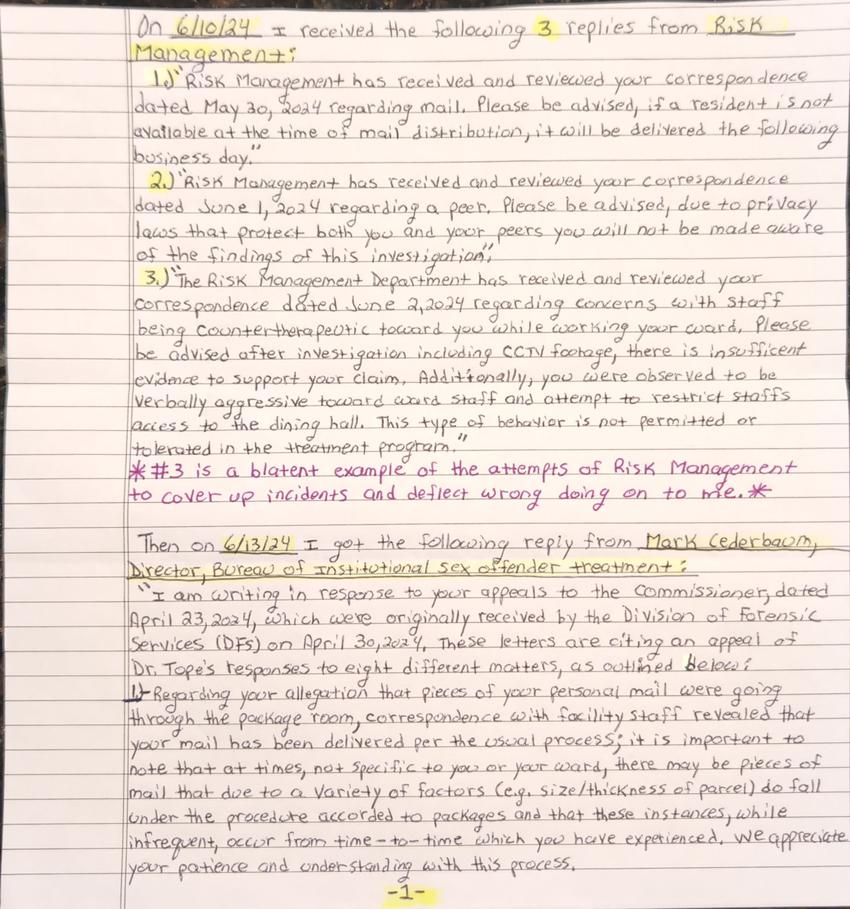 On 6/10/24 I received the following 3 replies from Risk
Management:
1.) "Risk Management has received and reviewed your correspondence
dated May 30, 2024 regarding mail. Please be advised, if a resident is not
available at the time of mail distribution, it will be delivered the following
business day."
2.) "Risk Management has received and reviewed your correspondence
dated June 1, 2024 regarding a peer. Please be advised, due to privacy
laws that protect both you and your peers you will not be made aware
of the findings of this investigation";
3.) "The Risk Management Department has received and reviewed your
correspondence dated June 2, 2024 regarding concerns with staff
being countertherapeutic toward you while working your ward. Please
be advised after investigation including CCTV footage, there is insufficent
evidence to support your claim. Additionally, you were observed to be
verbally aggressive toward ward staff and attempt to restrict staffs
access to the dining hall. This type of behavior is not permitted or
tolerated in the treatment program."
*#3 is a blatent example of the attempts of Risk Management
to cover up incidents and deflect wrong doing on to me.*
Then on 6/13/24 I got the following reply from Mark Cederbaum,
Director, Bureau of Institutional Sex offender treatment:
"I am writing in response to your appeals to the Commissioner, dated
April 23, 2024, which were originally received by the Division of Forensic
Services (DFs) on April 30, 2024. These letters are citing an appeal of
Dr. Tope's responses to eight different matters, as outlined below:
1.- Regarding your allegation that pieces of your personal mail were going
through the package room, correspondence with facility staff revealed that
your mail has been delivered per the usual process; it is important to
note that at times, not specific to you or your ward, there may be pieces of
mail that due to a variety of factors (e.g. size/thickness of parcel) do fall
under the procedure accorded to packages and that these instances, while
infrequent, occur from time-to-time which you have experienced. We appreciate
your patience and understanding with this process.
-1-